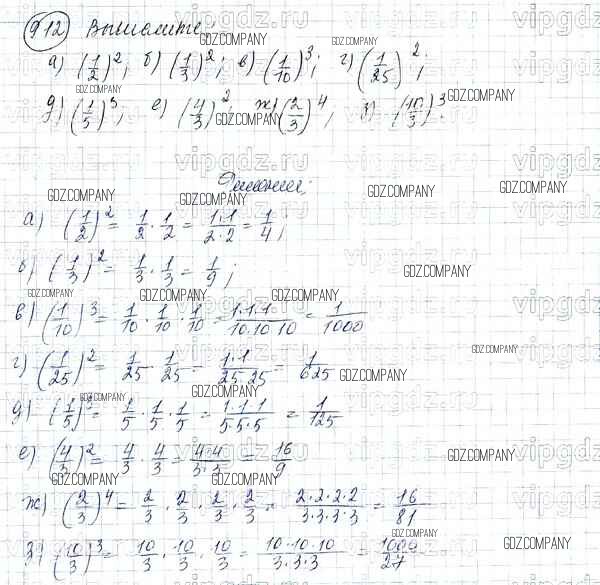 912 Выполните:
а) (1/2)²; б) (1/3)²; в) (1/10)³; г) (1/25)²;
д) (1/5)³; е) (4/3)²; ж) (2/3)⁴; з) (10/3)³.
Решение:
а) (1/2)² = 1/2 · 1/2 = 1·1/2·2 = 1/4;
б) (1/3)² = 1/3 · 1/3 = 1/9;
в) (1/10)³ = 1/10 · 1/10 · 1/10 = 1·1·1/10·10·10 = 1/1000
г) (1/25)² = 1/25 · 1/25 = 1·1/25·25 = 1/625
д) (1/5)³ = 1/5 · 1/5 · 1/5 = 1·1·1/5·5·5 = 1/125
е) (4/3)² = 4/3 · 4/3 = 4·4/3·3 = 16/9
ж) (2/3)⁴ = 2/3 · 2/3 · 2/3 · 2/3 = 2·2·2·2/3·3·3·3 = 16/81
з) (10/3)³ = 10/3 · 10/3 · 10/3 = 10·10·10/3·3·3 = 1000/27
GDZ.COMPANY
vipgdz.ru